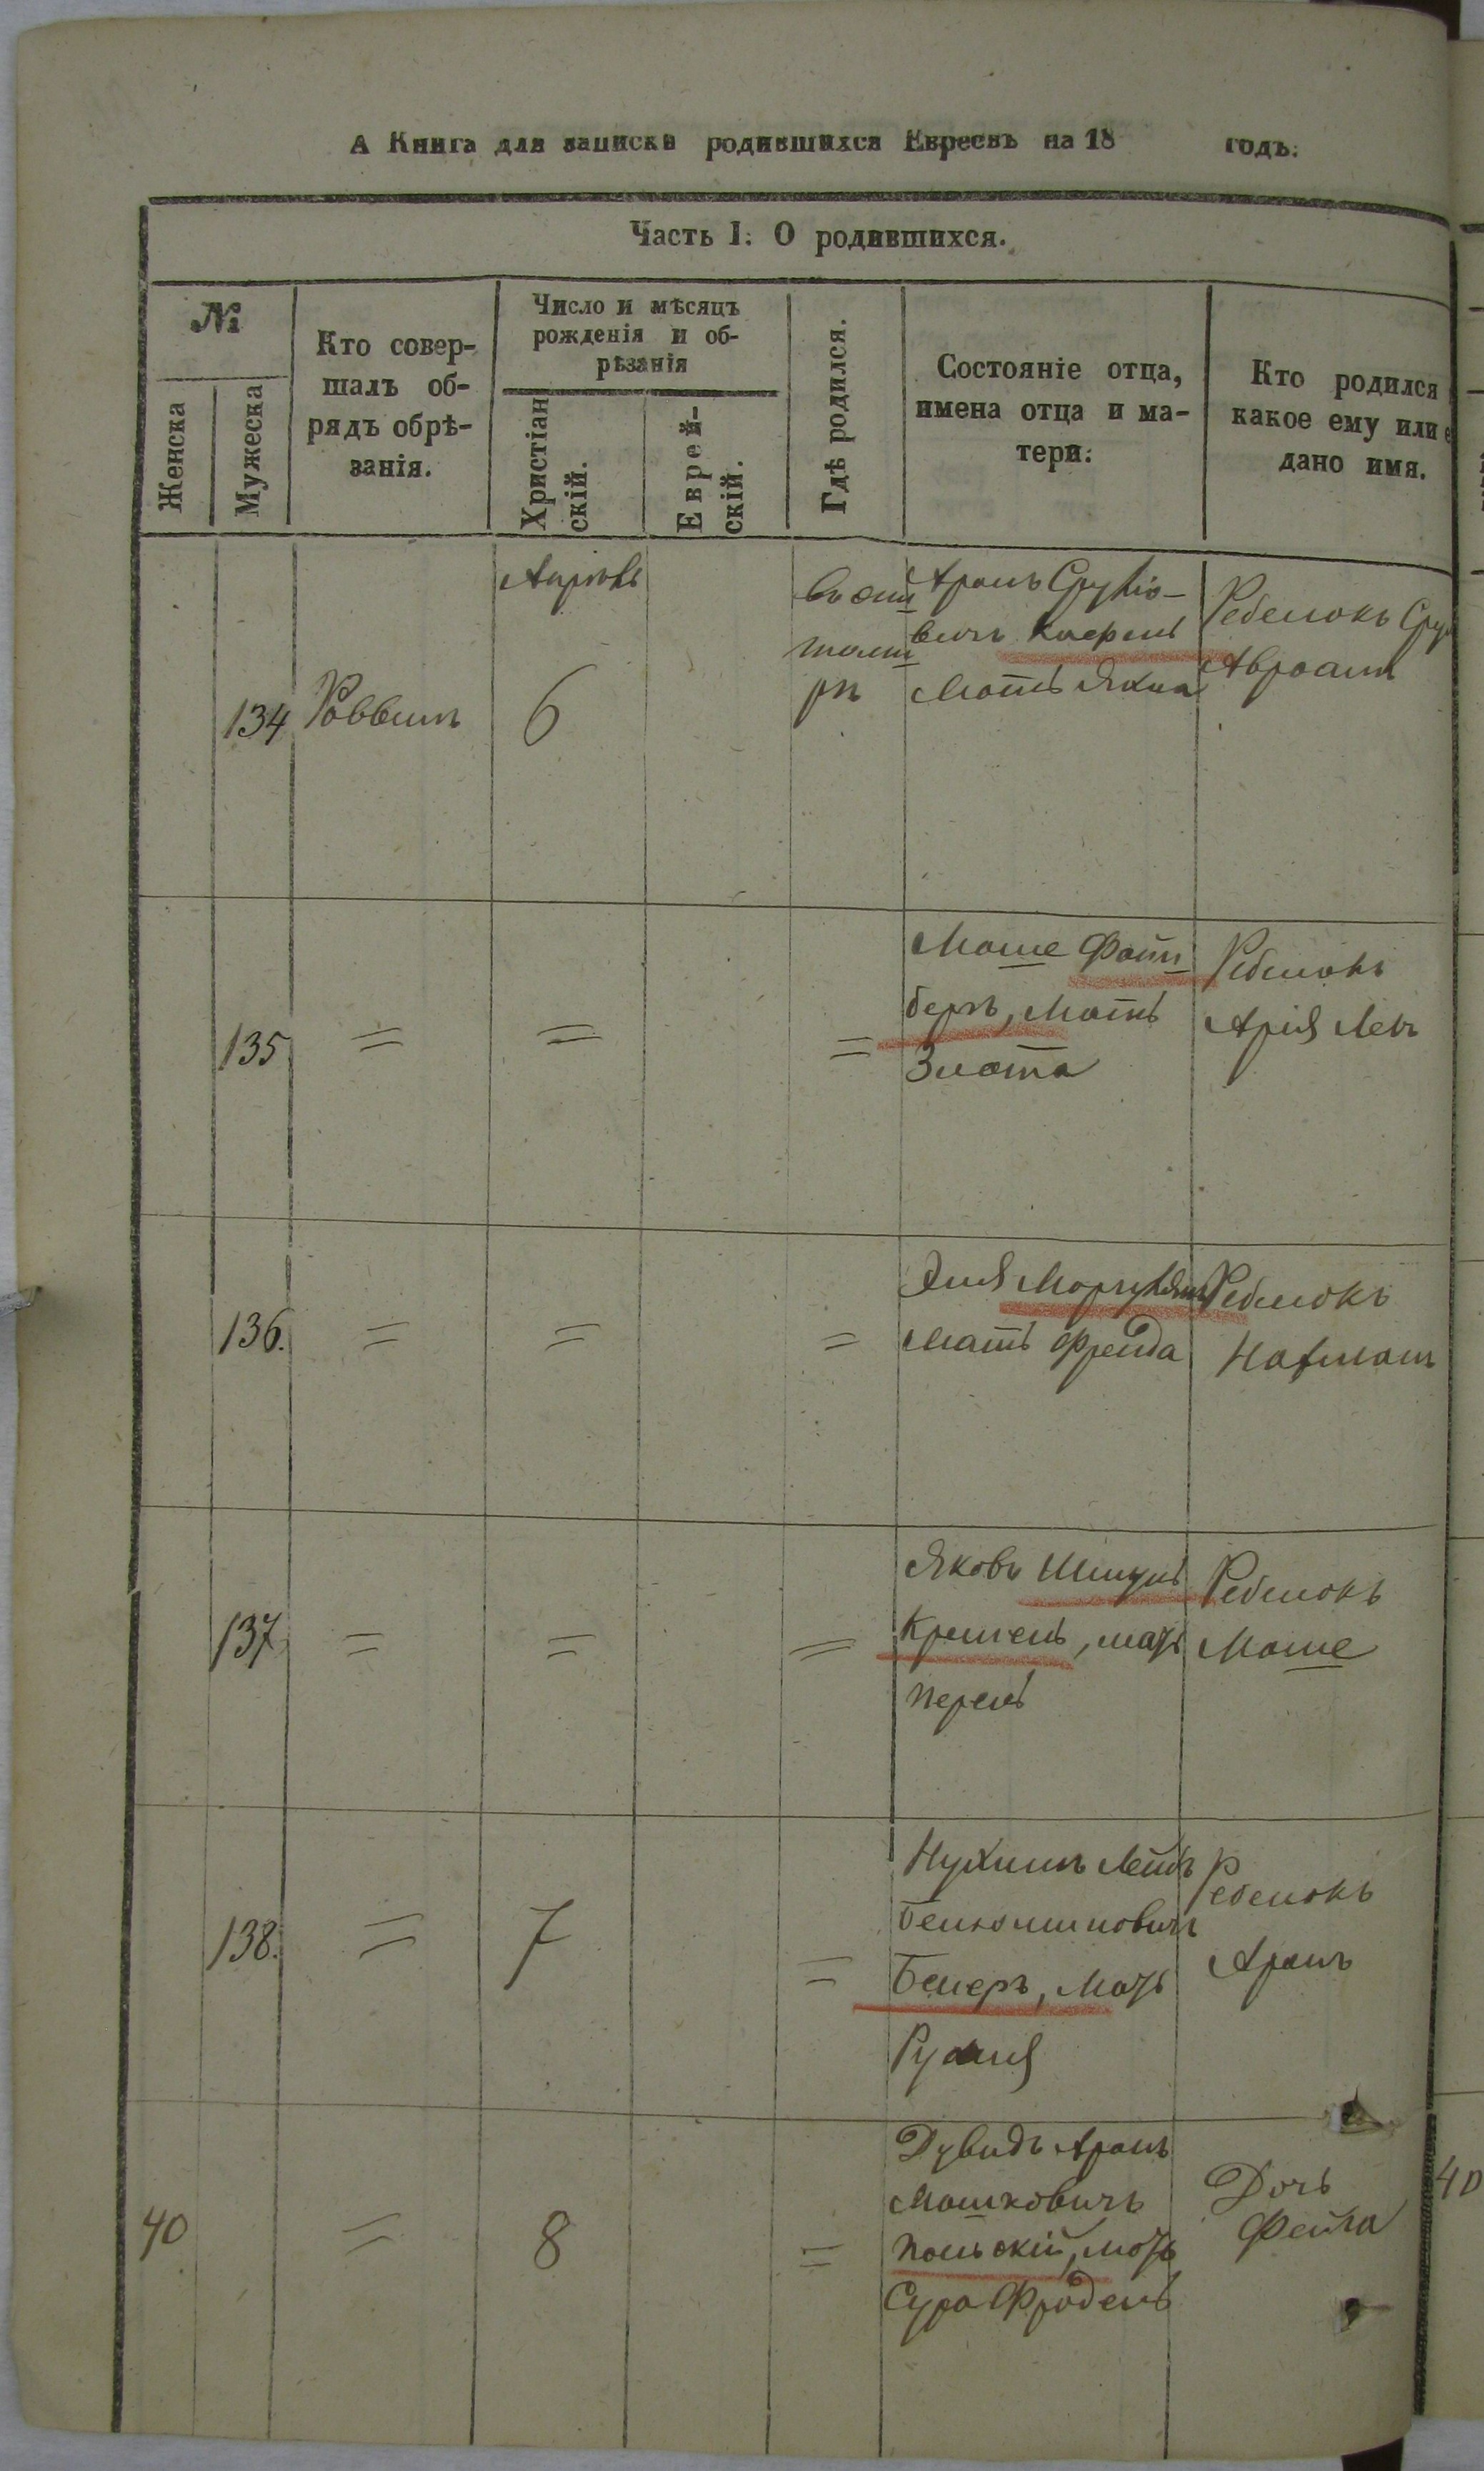 А Книга для записки родившихся Евреевъ на 18 годъ.
Часть I. О родившихся.
№
Женска
Мужеска
Кто совер-
шалъ об-
рядъ обрѣ-
занія.
Число и мѣсяцъ
рожденія и об-
рѣзанія
Христіан
скій.
Еврей-
скій.
Гдѣ родился.
Состояніе отца,
имена отца и ма-
тери.
Кто родился
какое ему или е
дано имя.
Апрѣль
134
Раввинъ
6
Въ
Аронъ Срулiо-
вичъ
Мать Яхна
Ребенокъ Сру
Авроамъ
135
=
=
=
Моше Файн
бергъ, Мать
Злота
Ребенокъ
Арія Лейб
136.
=
=
=
Эля Моргулянъ
Мать Фрейда
Ребенокъ
Нахманъ
137
=
=
=
Яковъ
мать
Перель
Ребенокъ
Моше
138.
=
7
=
Нухимъ Лейбъ
Беньоминовичъ
Мать
Рухля
Ребенокъ
Аронъ
40
=
8
=
Дувидъ Аронъ
Мошковичъ
Польскій, мать
Сура Фрадель
Дочь
Фейга
40